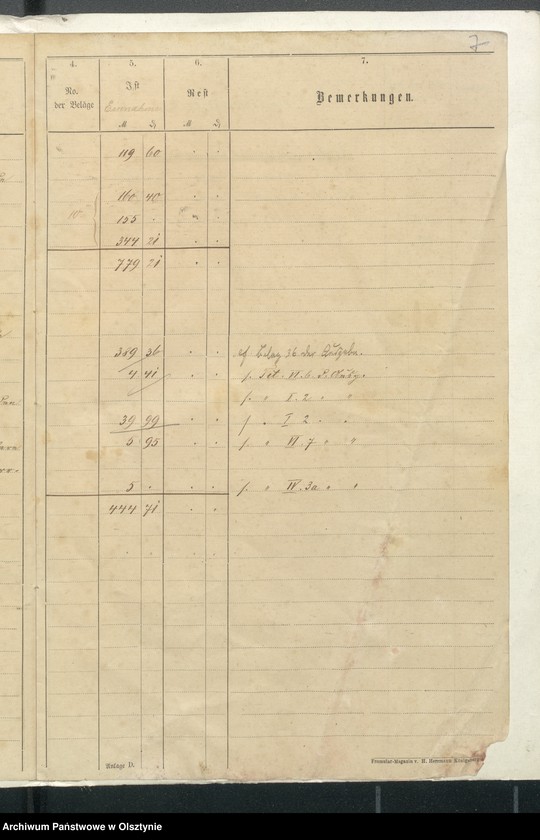 7
4. 5. 6. 7.
No. der Beläge Ist Einnahme Rest Bemerkungen.
M ₰ M ₰
119 60 . .
160 40 . .
10
155 .
344 21 . .
779 21 . .
389 36 . . cf Belag 36 der Ausgabe.
4 41 . . f. Tit. VI. 6.
f. " X. 2 " "
39 99 . . f. " I. 2 " "
5 95 . . f. " VI. 7 " "
5 . . . f. " IV. 3a " "
444 71 . .
Anlage D.
Formular-Magazin v. H. Hermann
Archiwum Państwowe w Olsztynie